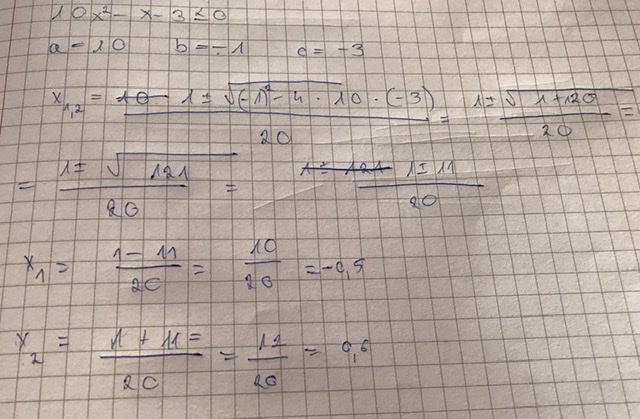 10x² - x - 3 ≤ 0
a = 10 b = -1 c = -3
x₁,₂ = ~~10~~ 1 ± √((-1)² - 4 · 10 · (-3)) / 20 = 1 ± √(1 + 120) / 20 =
= 1 ± √(121) / 20 = ~~1 ± 121~~ 1 ± 11 / 20
x₁ = 1 - 11 / 20 = 10 / 20 = -0,5
x₂ = 1 + 11 = / 20 = 12 / 20 = 0,6